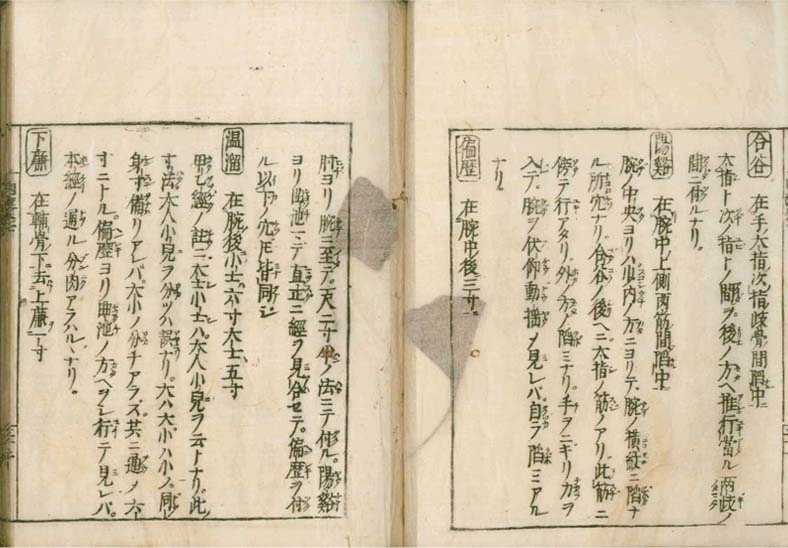 合谷 在手大指次指歧骨間陷中
大指ト次ノ指トノ間ヲ後ノ方ヘ推行當ル兩歧ノ
間ニ付ルナリ。
陽谿 在腕中上側兩筋間陷中
腕ノ中央ヨリハ少内ノ方ニヨリテ。腕ノ横紋ニ陷ナ
ル所穴ナリ。合谷ノ後ヘニ大指ノ筋ノアリ此筋ニ
傍テ行アタリ。外ノ方ノ陷ミナリ。手ヲニギリカヲ
入テ。腕ヲ伏仰動揺メ見レバ。自ラ陷ミアル
ナリ
偏歷 在腕中後三寸
肘ヨリ腕ニ至テ。一尺二寸ノ法ニテ付ル。陽谿
ヨリ曲池マデ直正ニ經ヲ見合セテ。偏歷ヲ付
ル以下ノ穴モ皆同シ
温溜 在腕後小士六寸大士五寸
甲乙經ノ註ニ大士小士ハ大人小兒ヲ云トナリ。此
寸法大人小兒ヲ分ツハ誤ナリ。大ハ大小ハ小ノ同
身寸備リアレバ。大小ノ分チアラズ。共ニ通ノ六
寸ニトル。偏歷ヨリ曲池ノ方ヘヲシ行テ見レバ。
本經ノ通ル分肉アラハルヽナリ。
下廉 在輔骨下去上廉一寸